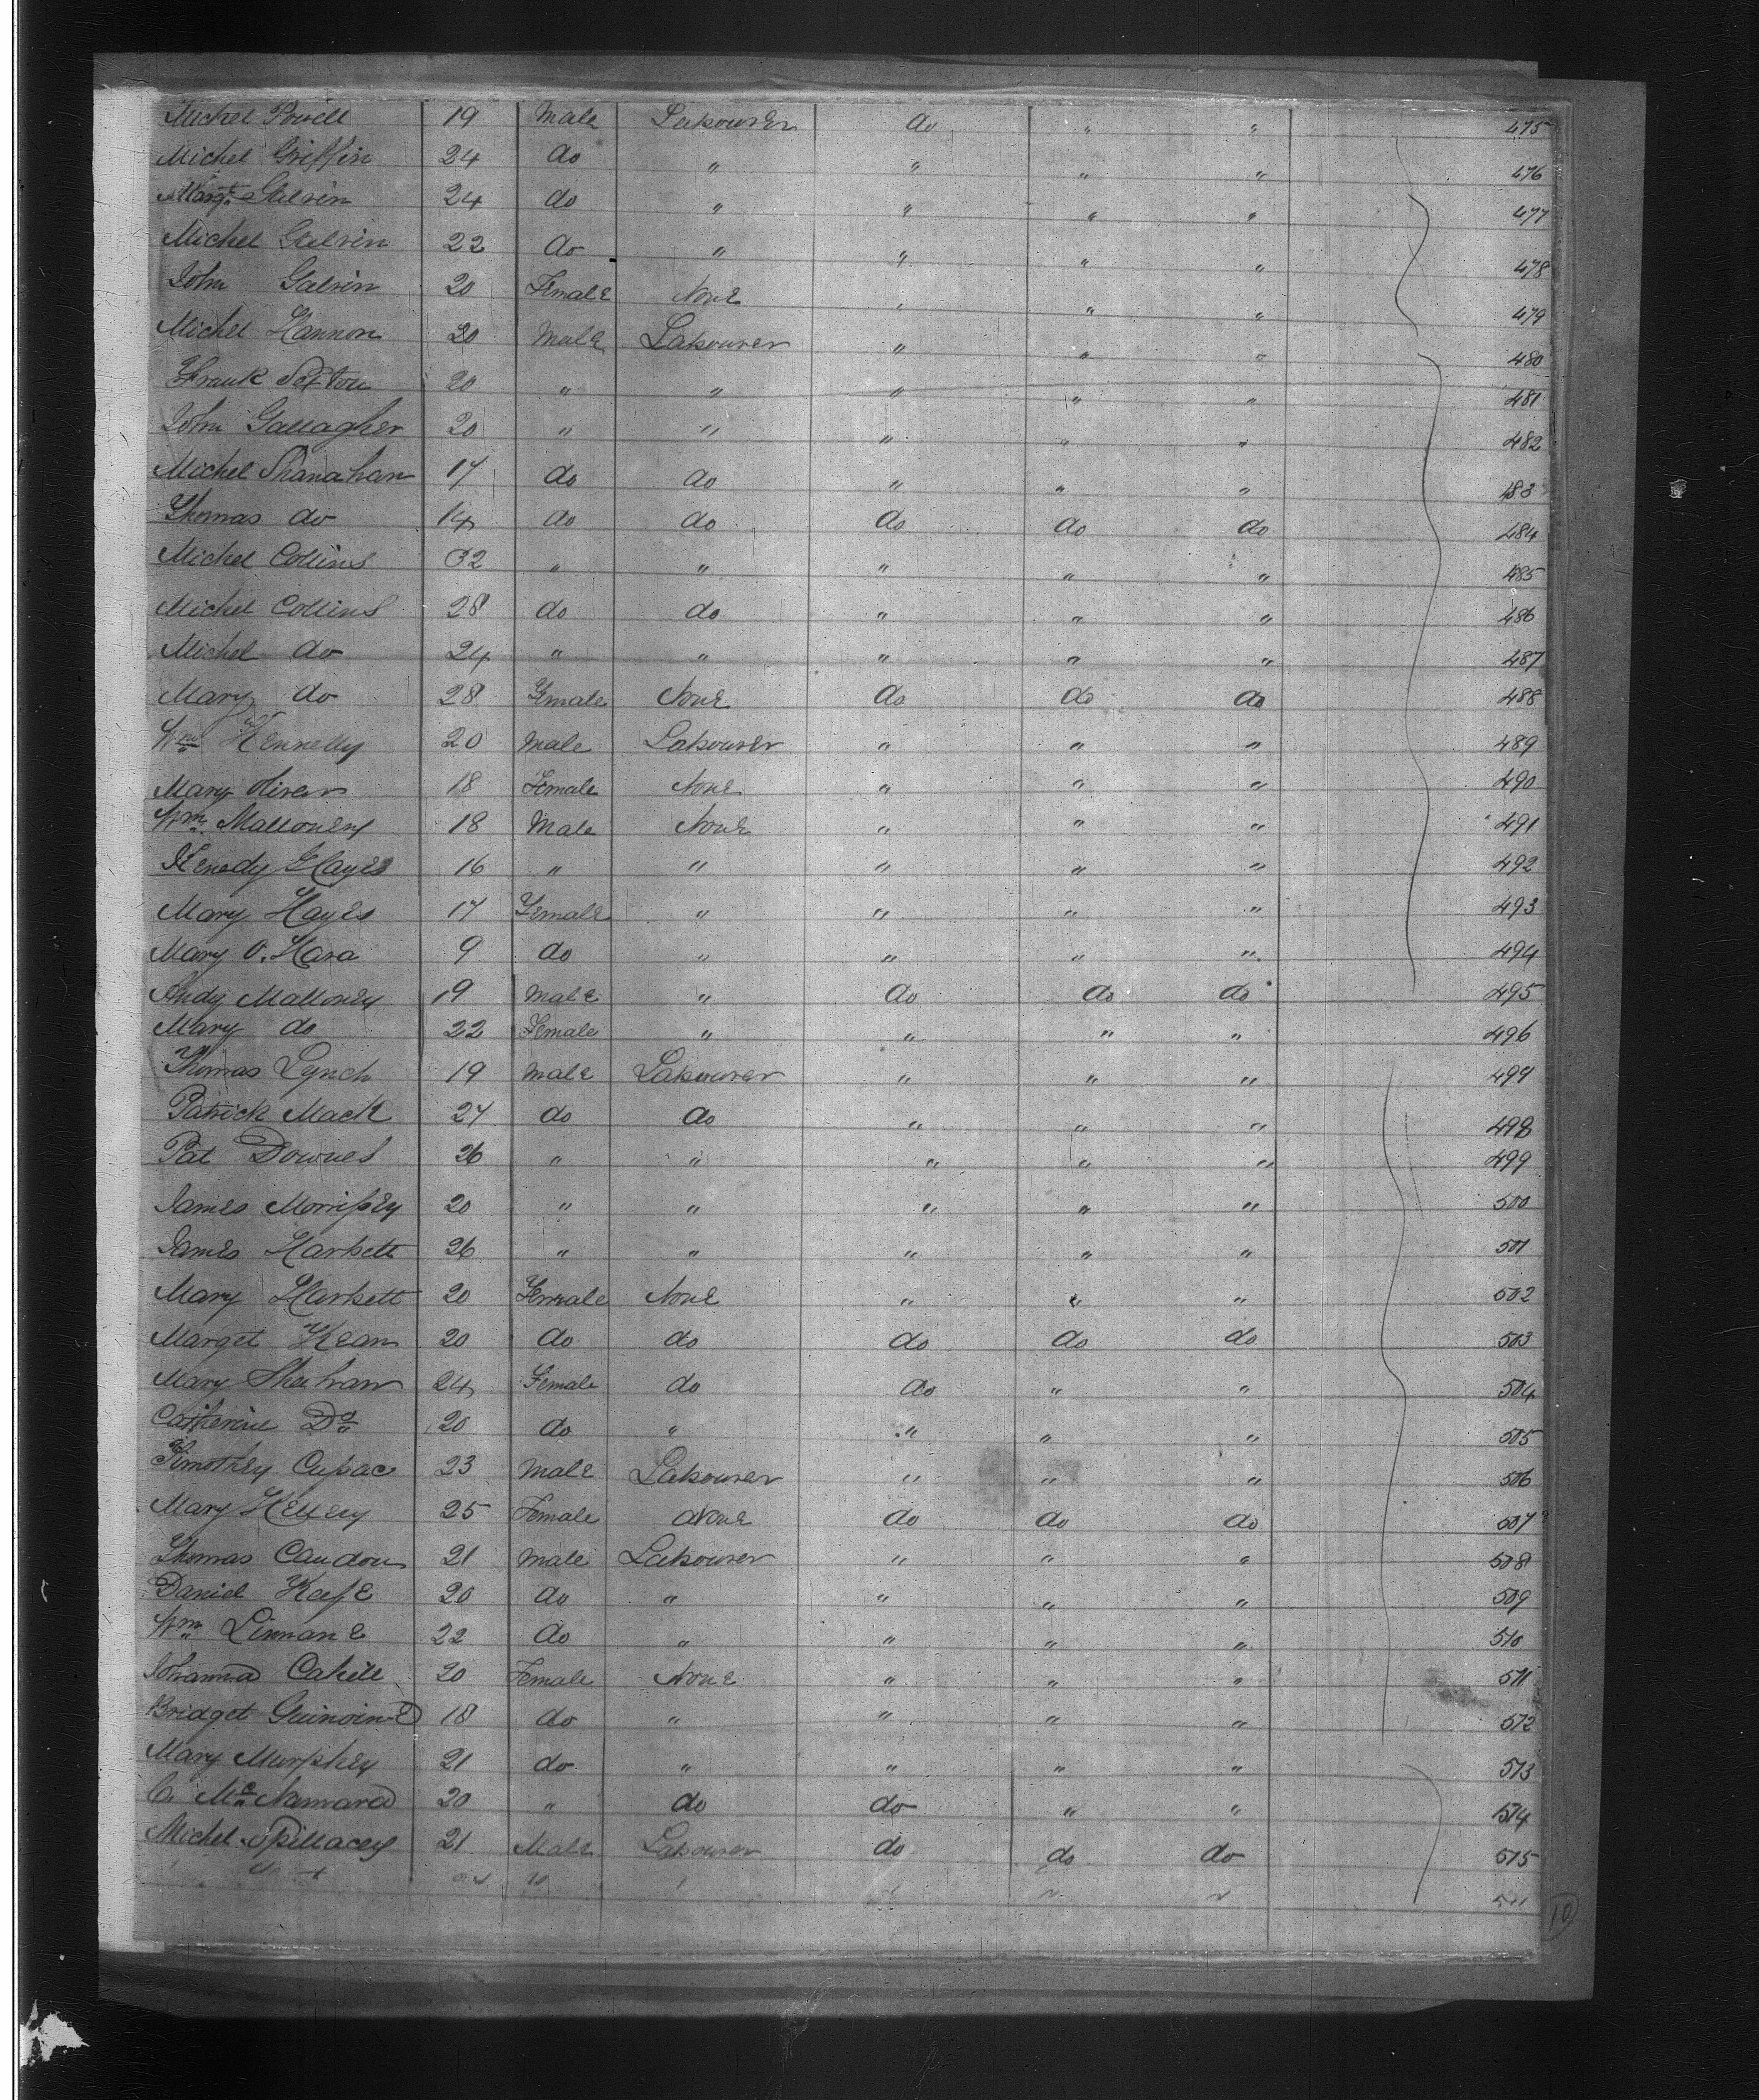 Michel Powell 19 Male Labourer do " " 475
Michel Griffin 24 do " " " " 476
Margt Galvin 24 do " " " " 477
Michel Galvin 22 do " " " " 478
John Galvin 20 Female None " " " 479
Michel Hannon 20 Male Labourer " " " 480
Frank Sexton 20 " " " " " 481
John Gallagher 20 " " " " " 482
Michel Shanahan 17 do do " " " 483
Thomas do 14 do do do do do 484
Michel Collins 32 " " " " " 485
Michel Collins 28 do do " " " 486
Michel do 24 " " " " " 487
Mary do 28 Female None do do do 488
Wm Kennelly 20 Male Labourer " " " 489
Mary Oliver 18 Female None " " " 490
Wm Malloney 18 Male None " " " 491
Kenedy Hayes 16 " " " " " 492
Mary Hayes 17 Female " " " " 493
Mary O. Hara 9 do " " " " 494
Andy Malloney 19 Male " do do do 495
Mary do 22 Female " " " " 496
Thomas Lynch 19 Male Labourer " " " 497
Patrick Mack 27 do do " " " 498
Pat Downes 26 " " " " " 499
James Morrissey 20 " " " " " 500
James Harkett 26 " " " " " 501
Mary Harkett 20 Female None " " " 502
Marget Kean 20 do do do do do 503
Mary Sheehan 24 Female do do " " 504
Catherine Do 20 do " " " " 505
Timothey 23 Male Labourer " " " 506
Mary 25 Female None do do do 507
Thomas Caudon 21 Male Labourer " " " 508
Daniel 20 do " " " " 509
Wm Linnane 22 do " " " " 510
Johanna Cahill 20 Female None " " " 511
Bridget 18 do " " " " 512
Mary Murphey 21 do " " " " 513
C. McNamara 20 " do do " " 514
Michel Spillacey 21 Male Labourer do do do 515
10